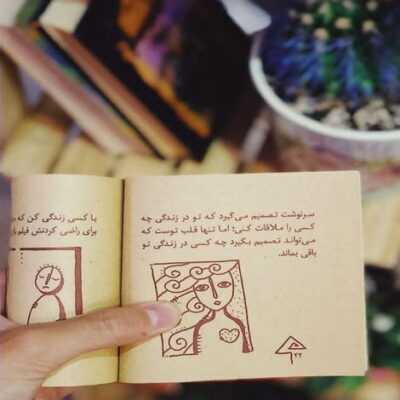 سرنوشت تصمیم می‌گیرد که تو در زندگی چه
کسی را ملاقات کنی؛ اما تنها قلب توست که
می‌تواند تصمیم بگیرد چه کسی در زندگی تو
باقی بماند.
۲۲
با کسی زندگی کن که
برای راضی کردنش فیلم